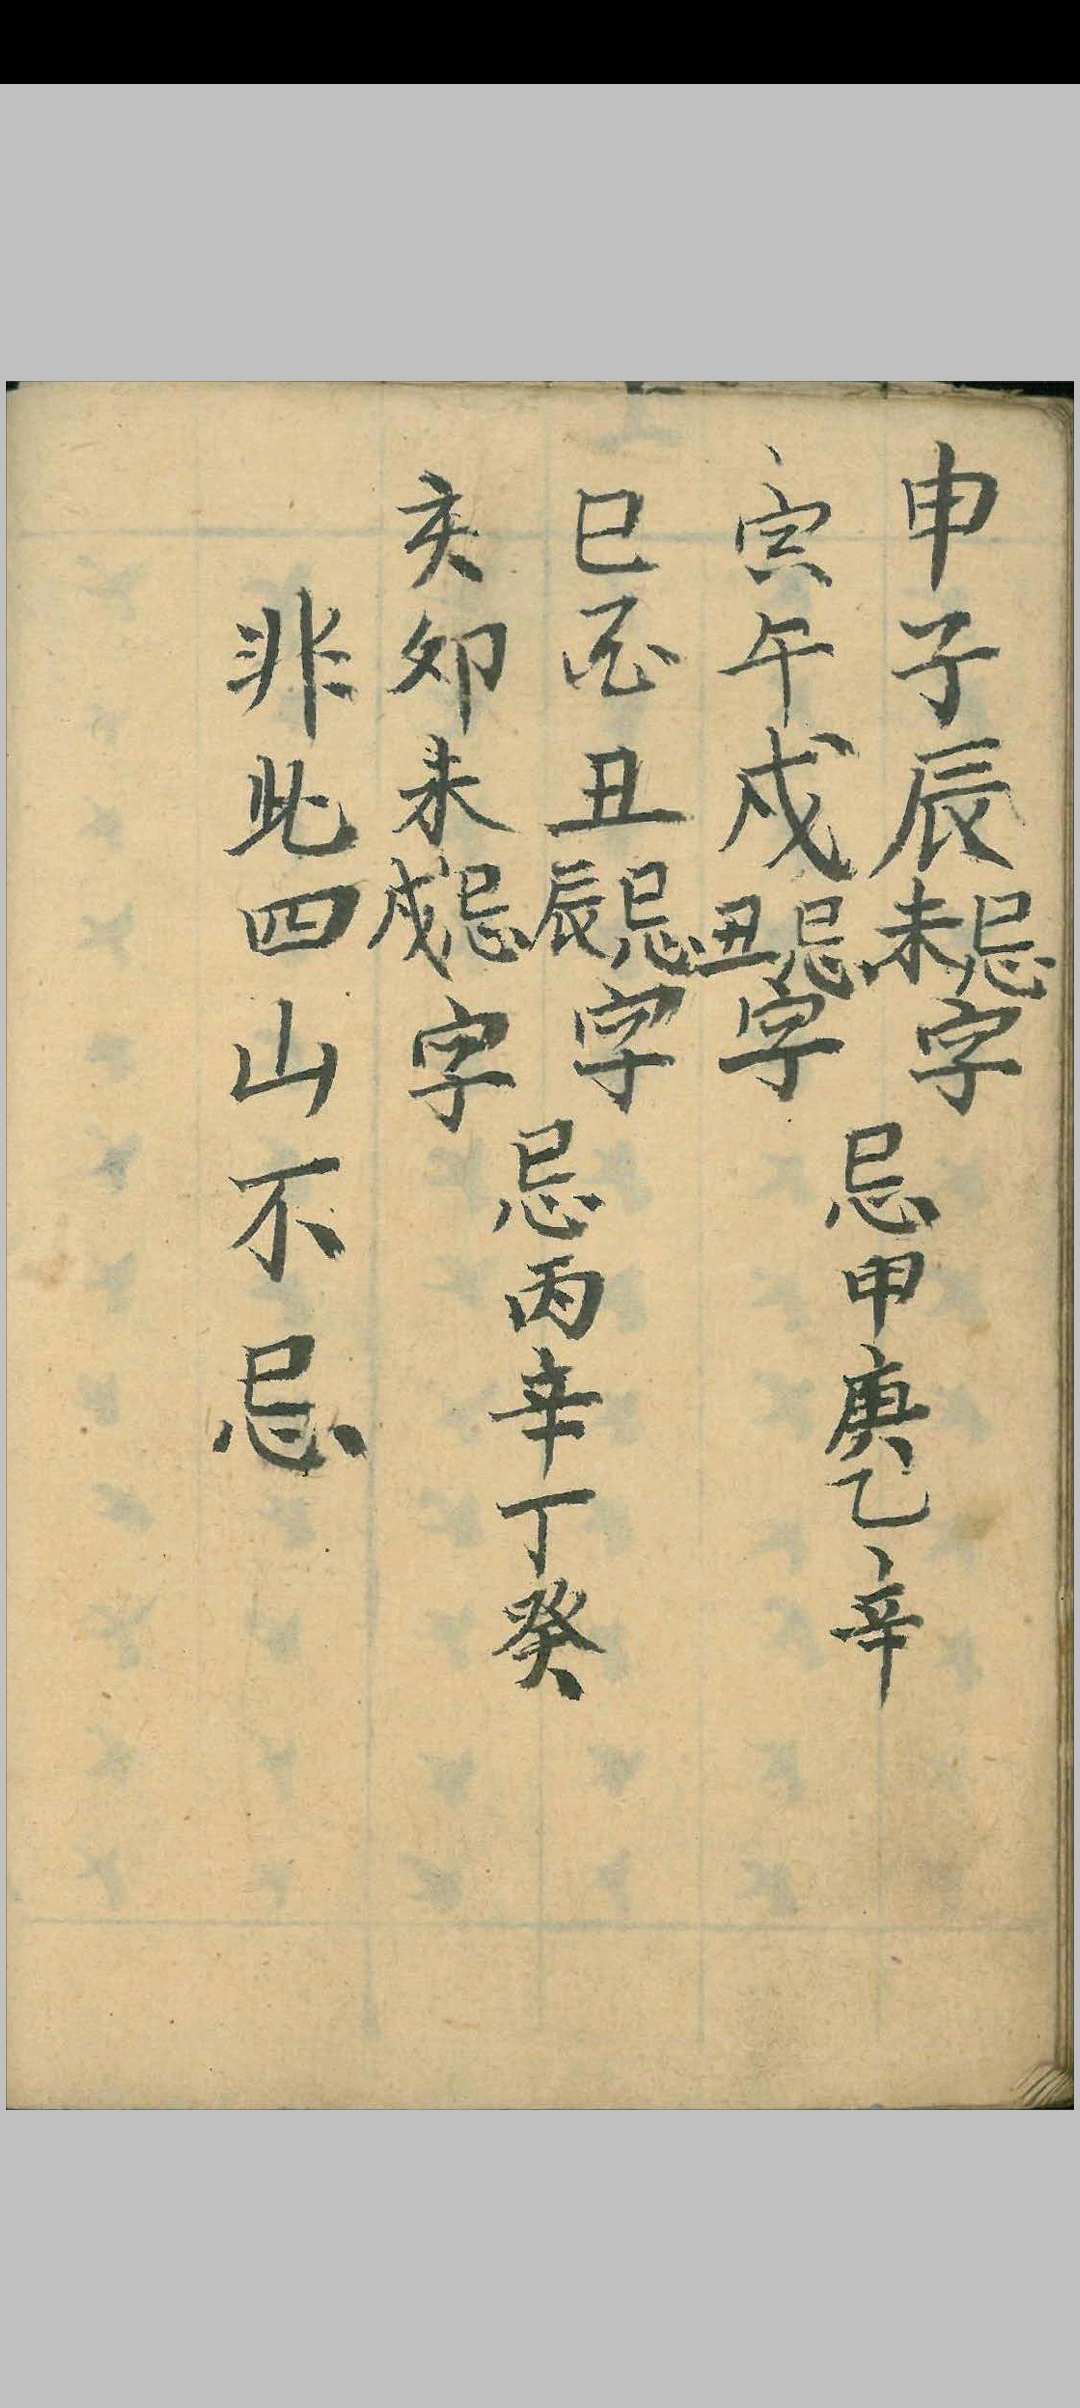 申子辰忌未字
忌甲庚乙辛
寅午戌忌丑字
巳酉丑忌辰字
忌丙辛丁癸
亥卯未忌戌字
非此四山不忌